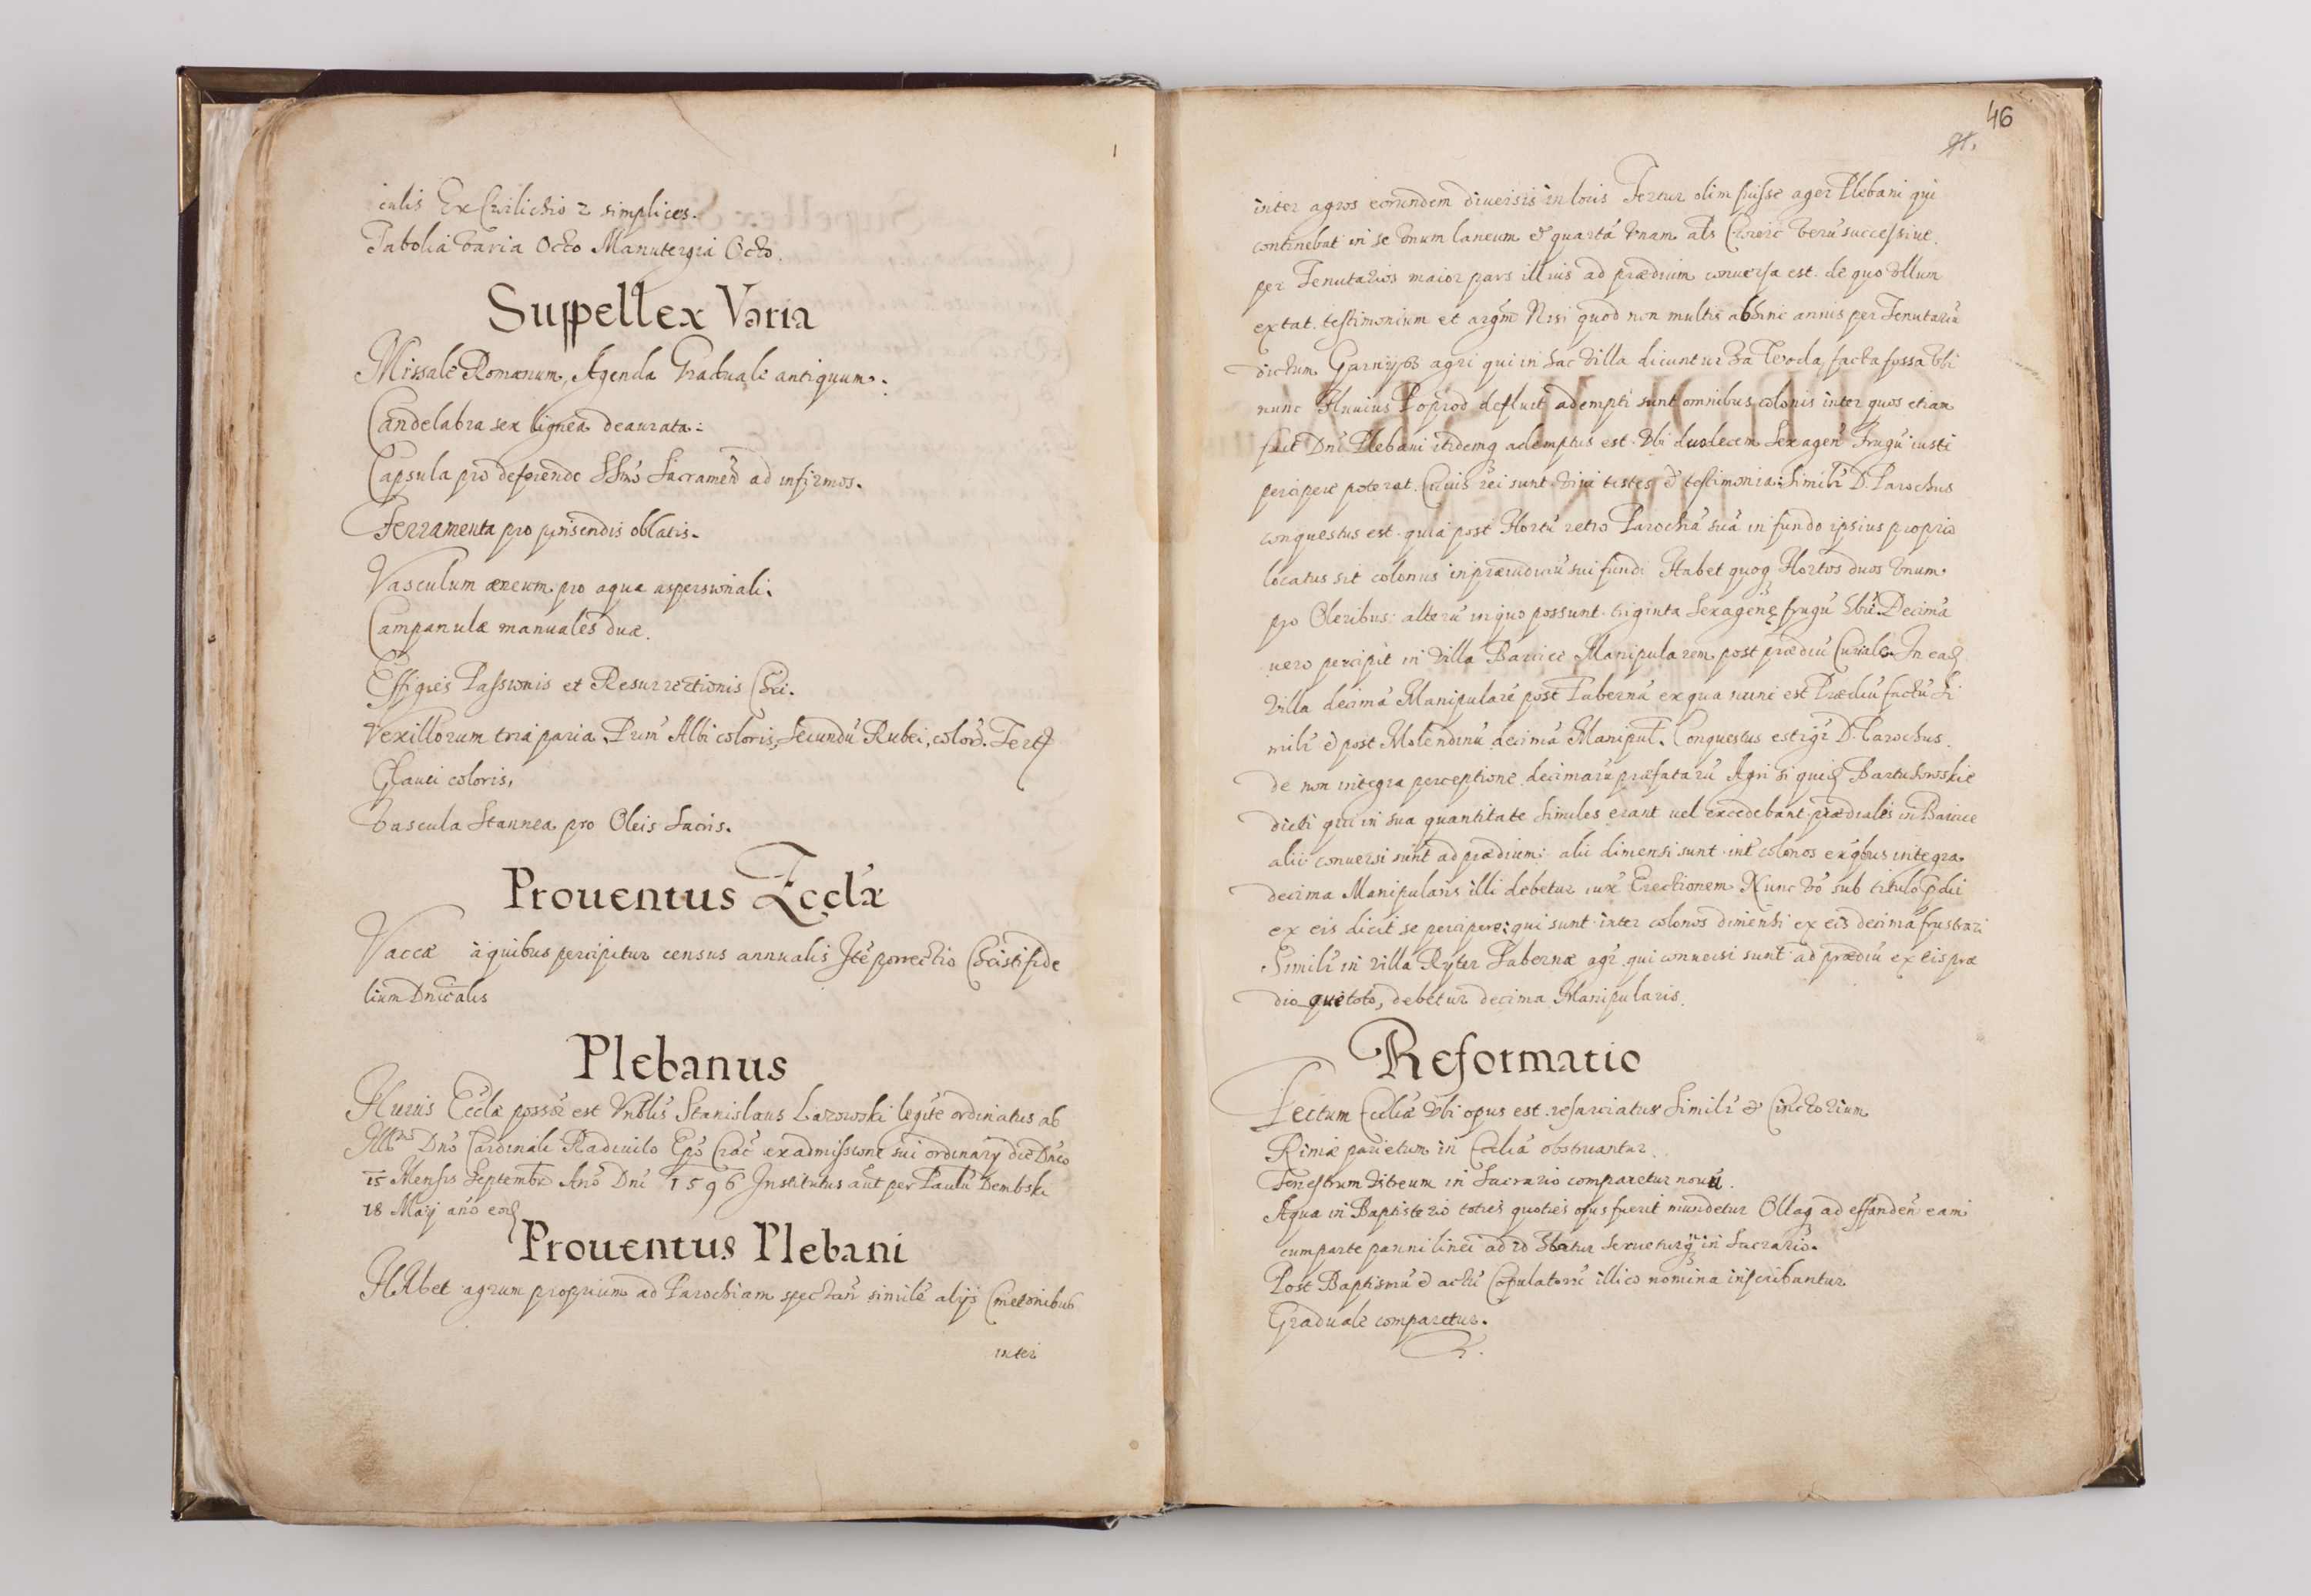 culis Ex Cwilichio 2 simplices.
Tabolia varia Octo Manutergia Octo.
Suppellex Varia
Missale Romanum, Agenda Graduale antiquum.
Candelabra sex lignea deaurata:
Capsula pro deferende SSmo Sacramen ad infirmos.
Ferramenta pro pinsendis oblatis.
Vasculum æneum pro aqua aspersionali.
Campanulæ manuales duæ.
Effigies Passionis et Resurrectionis Chri.
Vexillorum tria paria. Prim Albi coloris, Secundũ Rubei, color. Tertij
Glauci coloris,
Vascula Stannea pro Oleis Sacris.
Prouentus Ecclæ
Vaccæ à quibus percipitur census annualis Itẽ porrectio Christi fide
lium Dnicalis
Plebanus
Huius Ecclæ possor est Vnblis Stanislaus Lazowski legitẽ ordinatus ab
Illmo Dno Cardinali Radiuilo Epo Crac ex admissione sui ordinarij die Dnico
15 Mensis Septembr Ano Dni 1596 Institutus aũt per Paulũ Dembski
18 Maij ano eod
Prouentus Plebani
HAbet agrum proprium ad Parochiam spectan similẽ alijs Cmetonibus
inter
46
inter agros eorundem diuersis in locis Fertur olim fuisse ager Plebani qui
continebat in se vnum laneum & quartã vnam als Cwierc verũ successiue
per Tenutarios maior pars illius ad prædium conuersa est. de quo vllum
extat testimonium et argm Nisi quod non multis abhinc annis per Tenutariũ
dictum agri qui in hac villa dicuntur Za Woda, facta fossa vbi
nunc Fluuius Poprod defluit adempti sunt omnibus colonis inter quos etiam
fuit Dni Plebani itidemq ademptus est. Vbi duodecem Sexagen Frugũ iusti
percipere poterat. Cuius rei sunt viui testes & testimonia: Similr D. Parochus
conquestus est quia post Hortũ retro Parochiã suã in fundo ipsius proprio
locatus sit colonus in præiudiciũ sui fundi Habet quoq Hortos duos vnum
pro Oleribus: alterũ in quo possunt triginta Sexagenę frugũ Decimã
uero percipit in villa Barcice Manipularem post prædiũ Curiale. In ead
villa decimã Manipularẽ post Tabernã ex qua nunc est Prædiũ factũ Si
milr & post Molendinũ decimã Manipul. Conquestus est igr D. Parochus
de non integra perceptione decimarũ præfatarũ Agri siquid Bartuhowskie
dicti qui in sua quantitate similes erant uel excedebant prædiales in Barcice
alii conuersi sunt ad prædium: alii dimensi sunt int colonos ex qbus integra
decima Manipularis illi debetur iux Erectionem Nunc vo sub titulo pdii
ex eis dicit se percipere: qui sunt inter colonos dimensi ex eis decimã frustrari
Similr in villa Ryter Tabernæ agr qui conuersi sunt ad prædiũ ex eis præ
dio que toto, debetur decima Manipularis.
Reformatio
Tectum Ecclíæ vbi opus est resarciatur Similr & Cinctorium
Rimæ parietum in Ecclia obstruantur.
Fenestrum vitreum in Sacrario comparetur nouũ.
Aqua in Baptisterio toties quoties opus fuerit mundetur Ollaq ad effunden eam
cum parte panni linei ad id vtatur Serueturq in Sacrario.
Post Baptismũ & actũ Copulatorũ illico nomina inscribantur
Graduale comparetur.